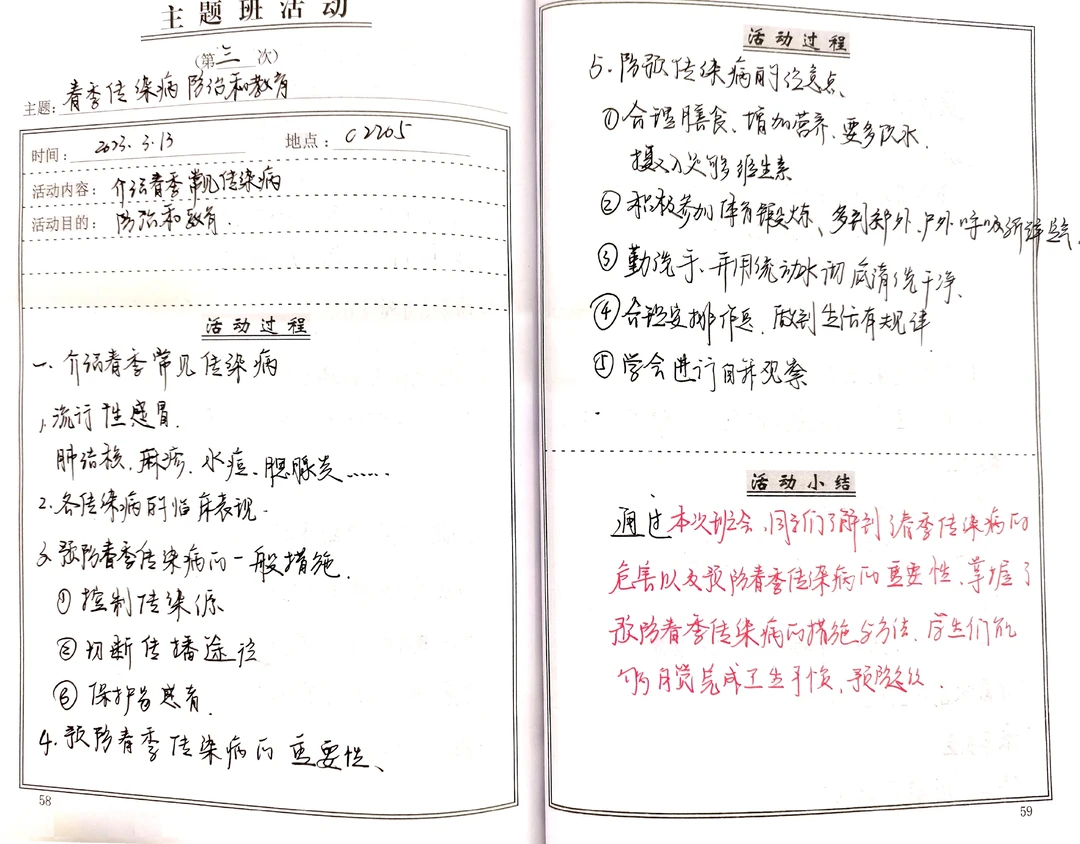 主题班活动
(第三次)
主题: 春季传染病防治和教育
时间: 2023.3.13 地点: C2205
活动内容: 介绍春季常见传染病
活动目的: 防治和教育.
活动过程
一、介绍春季常见传染病
1,流行性感冒.
肺结核、麻疹、水痘、腮腺炎......
2.各传染病的临床表现.
3.预防春季传染病的一般措施.
①控制传染源
②切断传播途径
③保护易感者.
4.预防春季传染病的重要性、
58
活动过程
5.防预传染病的注意点、
①合理膳食、增加营养、要多饮水.
摄入足够维生素
②积极参加体育锻炼、多到郊外、户外呼吸新鲜空气.
③勤洗手、并用流动水彻底清洗干净、
④合理安排作息、做到生活有规律
⑤学会进行自我观察
活动小结
通过本次班会,同学们了解到了春季传染病的
危害以及预防春季传染病的重要性、掌握了
预防春季传染病的措施与方法、学生们能
够自觉完成卫生习惯、预防
59